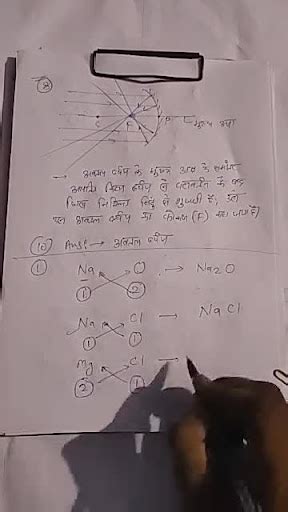 8
F
P
मुख्य अक्ष
→ अवतल दर्पण के मुख्य अक्ष के समांतर
दर्पण से परावर्तन के बाद
जिस निश्चित बिंदु से गुजरती है, उसे
अवतल दर्पण का फोकस (F) कहा जाता है।
10 Ans: → अवतल दर्पण
1 Na O → Na2O
1 2
Na Cl → NaCl
1 1
Mg Cl →
2 1